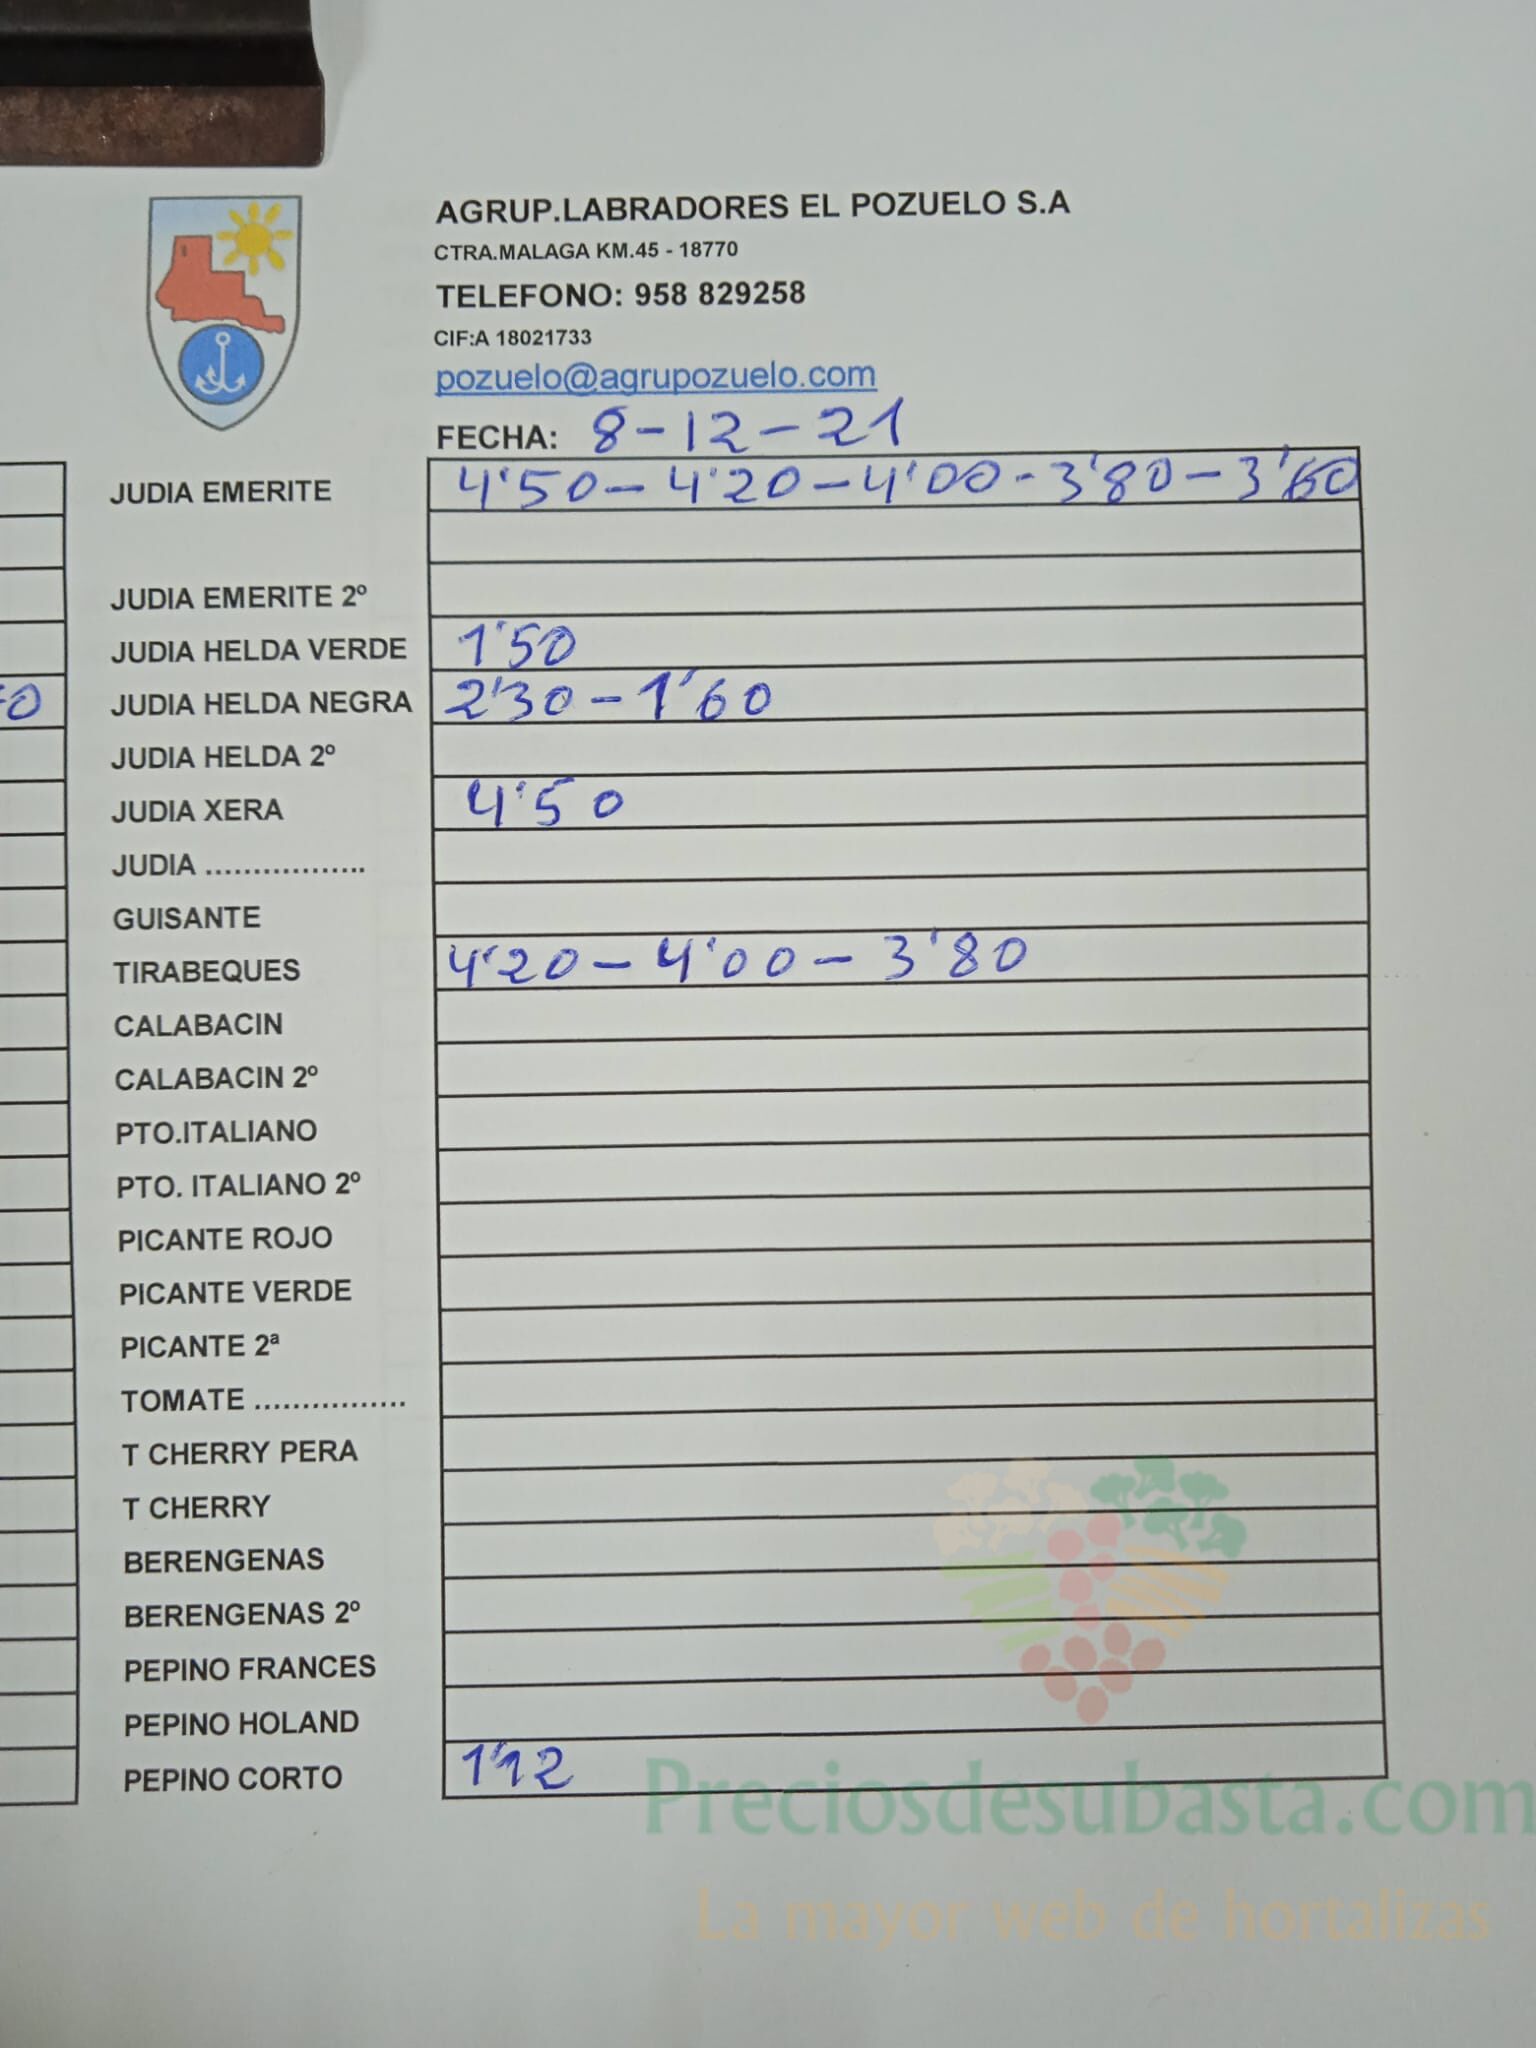 AGRUP.LABRADORES EL POZUELO S.A
CTRA.MALAGA KM.45 - 18770
TELEFONO: 958 829258
CIF:A 18021733
pozuelo@agrupozuelo.com
FECHA: 8-12-21
JUDIA EMERITE 4'50-4'20-4'00-3'80-3'60
JUDIA EMERITE 2º
JUDIA HELDA VERDE 1'50
JUDIA HELDA NEGRA 2'30-1'60
JUDIA HELDA 2º
JUDIA XERA 4'50
JUDIA .................
GUISANTE
TIRABEQUES 4'20-4'00-3'80
CALABACIN
CALABACIN 2º
PTO.ITALIANO
PTO. ITALIANO 2º
PICANTE ROJO
PICANTE VERDE
PICANTE 2ª
TOMATE ................
T CHERRY PERA
T CHERRY
BERENGENAS
BERENGENAS 2º
PEPINO FRANCES
PEPINO HOLAND
PEPINO CORTO 1'12
Preciosdesubasta.com
La mayor web de hortalizas